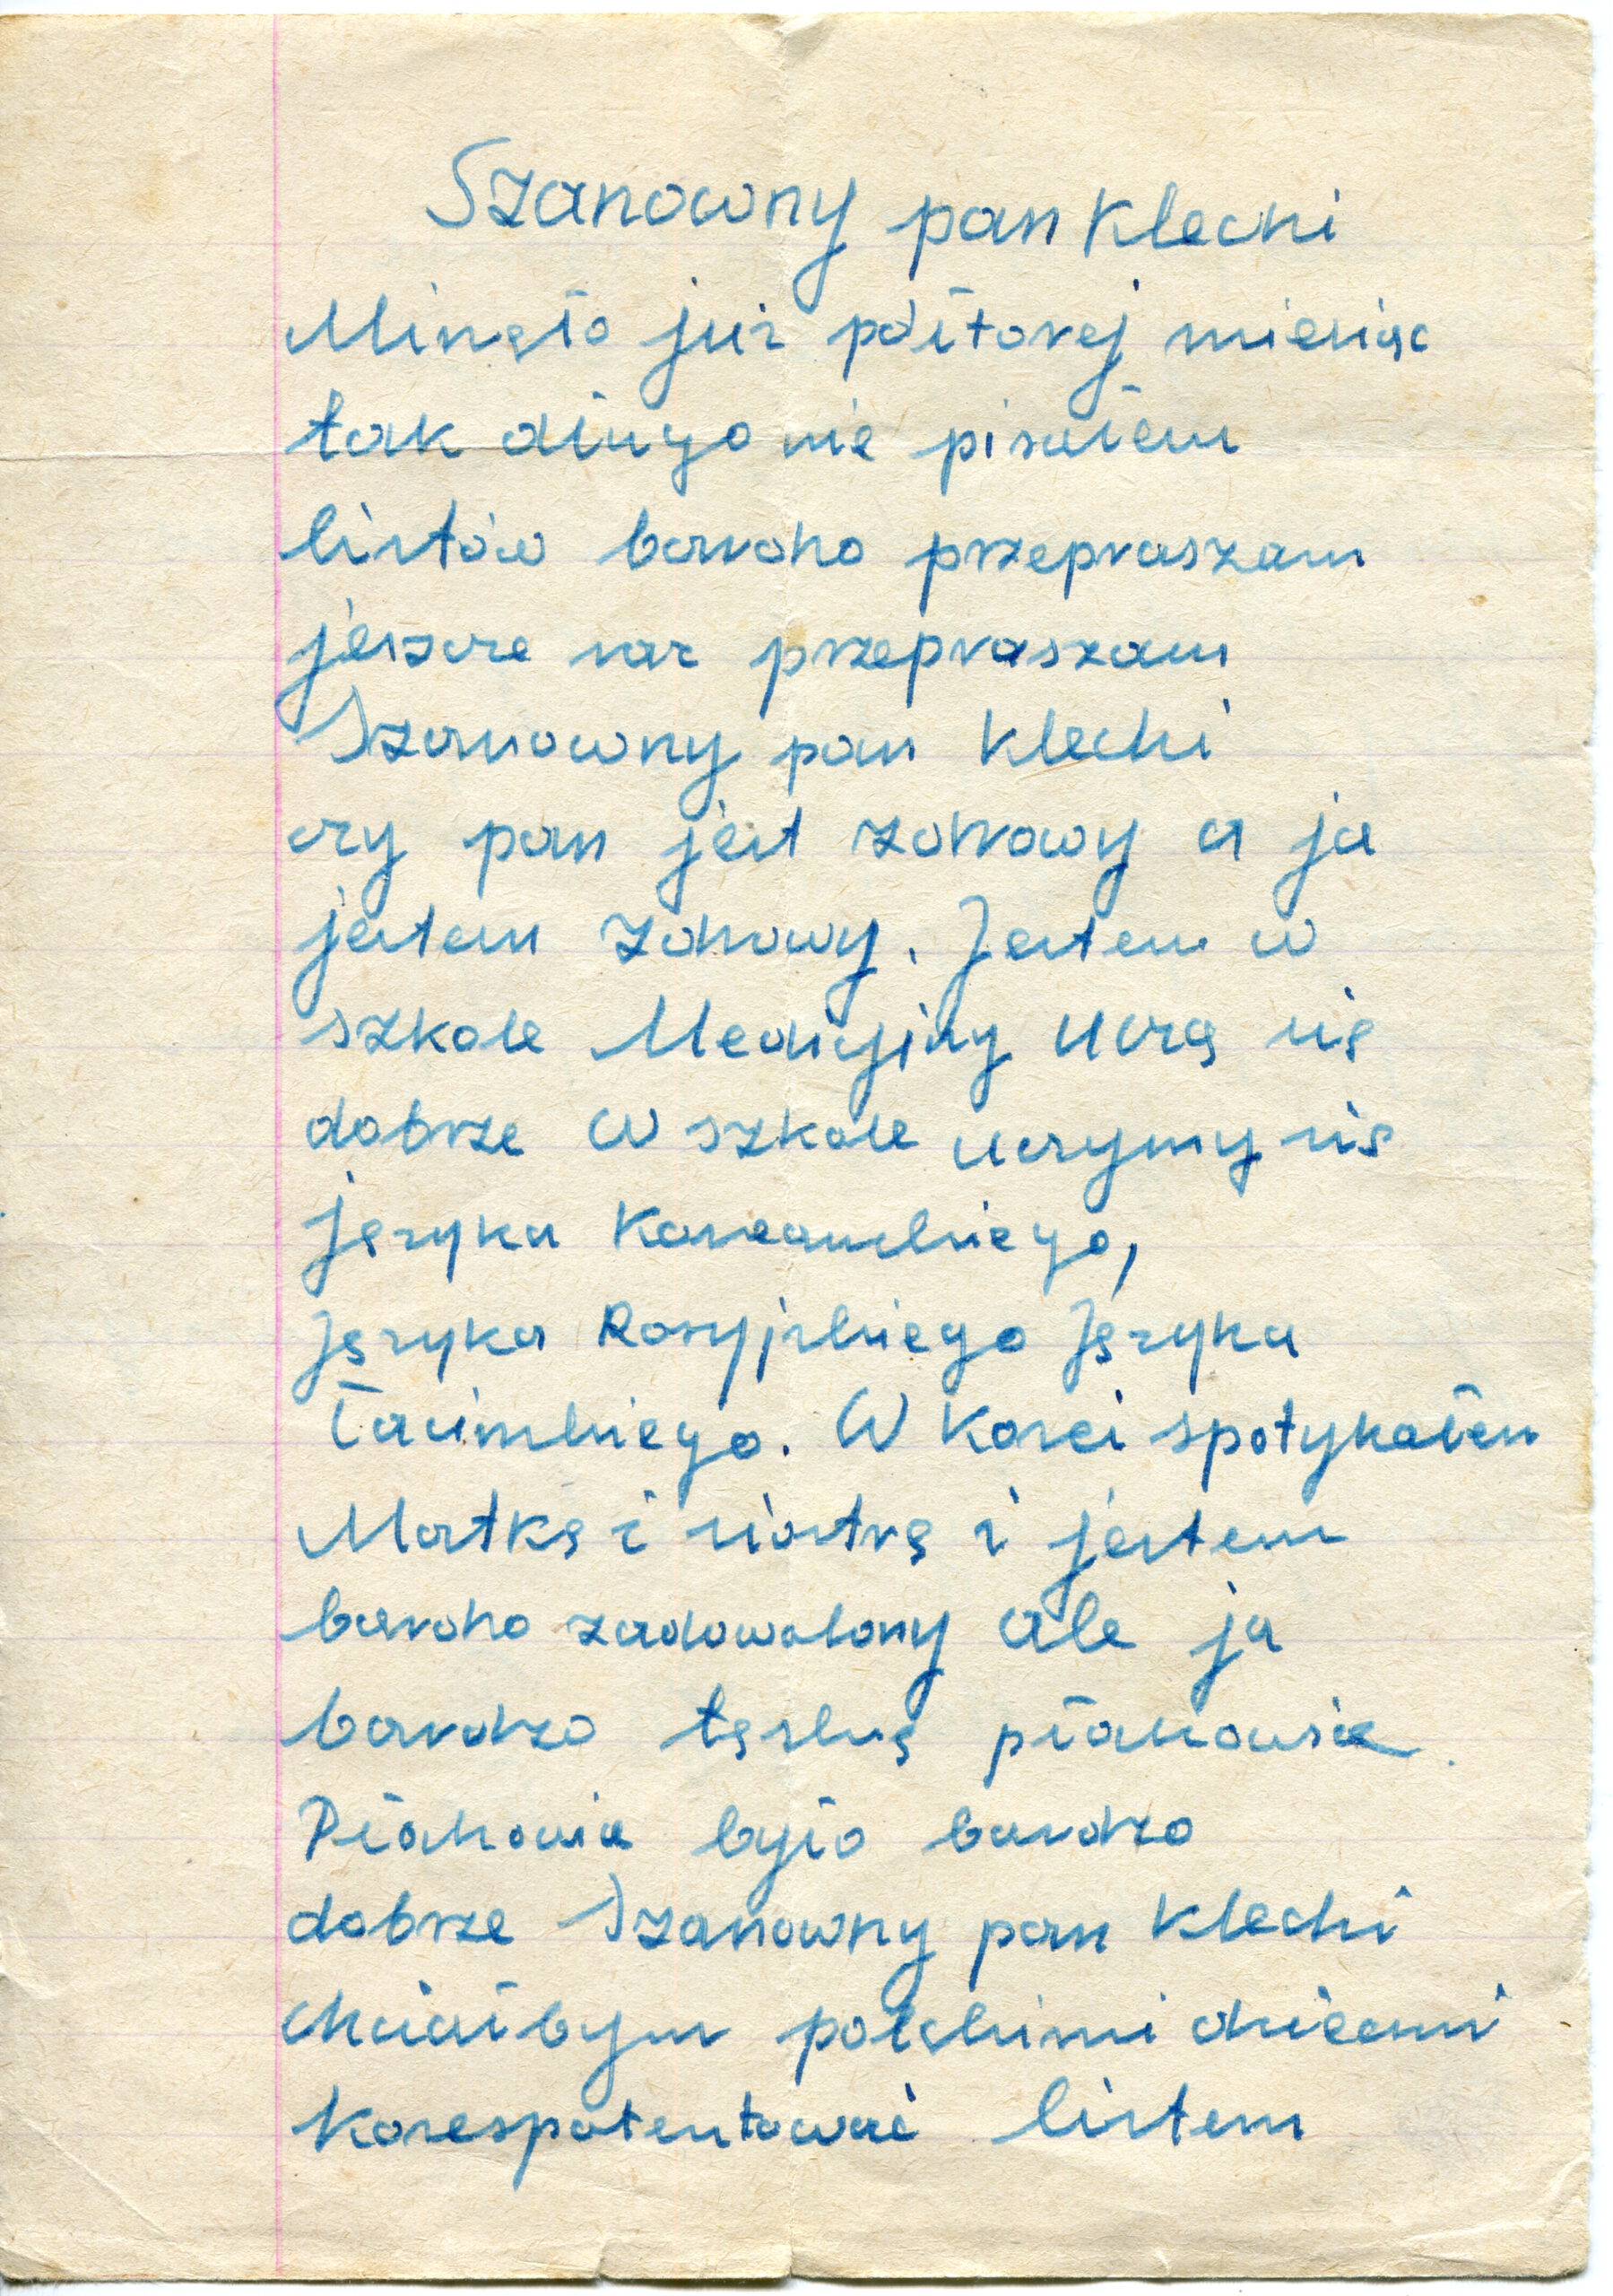 Szanowny pan Klecki
Minęło już półtorej miesiąc
tak długo nie pisałem
listów bardzo przepraszam
jeszcze raz przepraszam
Szanowny pan Klecki
czy pan jest zdrowy a ja
jestem zdrowy. Jestem w
szkole Medycyjny uczę się
dobrze W szkole uczymy się
języka Koreanskiego,
języka Rosyjskiego Języka
Łacinskiego. W Korei spotykałem
Matkę i siostrę i jestem
bardzo zadowolony ale ja
bardzo tęsknę płakowice
Płakowice było bardzo
dobrze Szanowny pan Klecki
chciałbym polskimi dziećmi
korespotentować listem